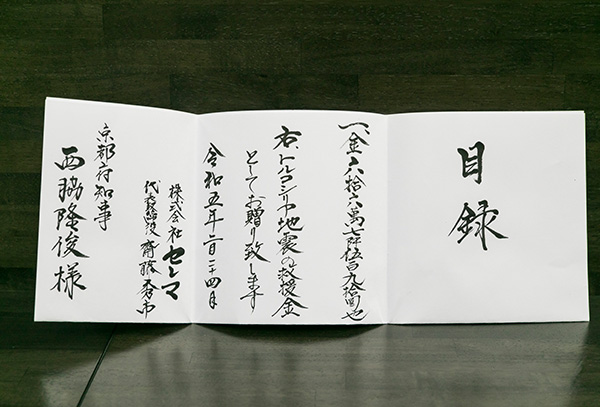 目録
一、金六拾六萬七阡伍百九拾圓也
右、トルコシリヤ地震の救援金
としてお贈り致します
令和五年二月二十四日
株式会社セレマ
代表取締役 齋藤秀市
京都府知事
西脇隆俊様